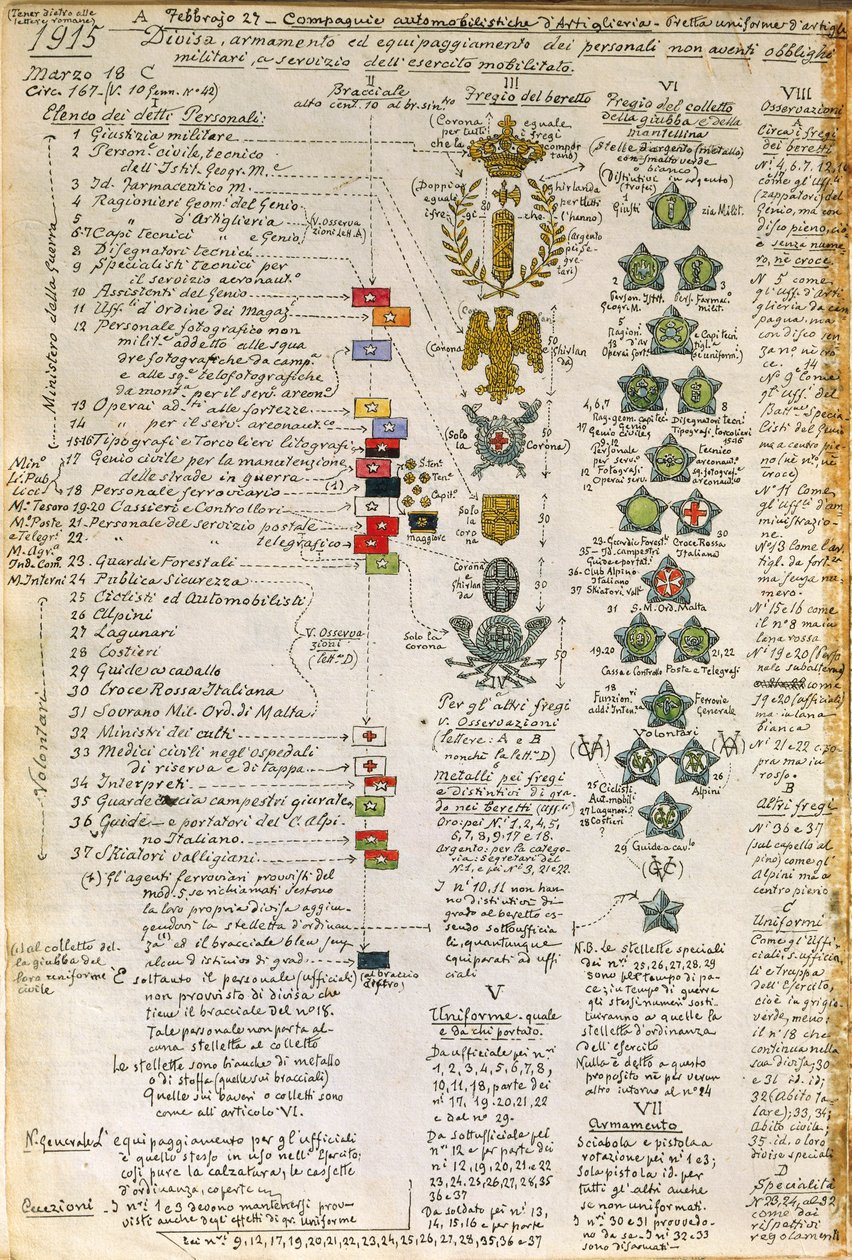 (Tener dietro alle
lettere romane)
A Febbrajo 27 — Compagnie automobilistiche d'Artiglieria. Pretta uniforme d'artigl
1915
Divisa, armamento ed equipaggiamento dei personali non aventi obblighi
militari, a servizio dell'esercito mobilitato.
Marzo 18 C
Circ. 167 (V. 10 Genn. N° 42)
I
Elenco dei detti Personali:
Ministero della Guerra
1 Giustizia militare
2 Person.e civile, tecnico
dell'Istit. Geogr. M.e
3 Id. Farmaceutico M.
4 Ragionieri Geom. del Genio
5 " d'Artiglieria
6-7 Capi tecnici " e Genio
(V. Osserva
zioni Lett. A)
8 Disegnatori tecnici
9 Specialisti tecnici per
il servizio aeronaut.o
10 Assistenti del Genio
11 Uff.li d'Ordine dei Magaz.i
12 Personale fotografico non
milit.e addetto alle squa
dre fotografiche da camp.a
e alle sq.e telefotografiche
da mont.a per il serv.o areon.o
13 Operai ad.ti alle fortezze
14 " per il serv. areonaut.co
15-16 Tipografi e Torcolieri litografi
Min.o
Li. Pub
lici
17 Genio civile per la manutenzione
delle strade in guerra
18 Personale ferroviario (1)
M.o Tesoro 19-20 Cassieri e Controllori
M.o Poste
e Telegri
21 Personale del servizio postale
22 " " telegrafico
M. Agr.a
Ind. Com.o
23 Guardie Forestali
M. Interni 24 Pubblica Sicurezza
Volontari
25 Ciclisti ed Automobilisti
26 Alpini
27 Lagunari
28 Costieri
29 Guide a cavallo
30 Croce Rossa Italiana
31 Sovrano Mil. Ord. di Malta
V. Osserva
zioni
(lett.a D)
32 Ministri dei culti
33 Medici civili negl'ospedali
di riserva e di tappa
34 Interpreti
35 Guardie campestri giurate
36 Guide — e portatori del C. Alpi-
no Italiano
37 Skiatori valligiani
(1) Gl'agenti ferroviari provvisti del
mod. 5, se richiamati vestono
la loro propria divisa aggiun-
gendovi la stelletta d'ordinan
za (1) ed il bracciale bleu, sen
alcun distintivo di grado
(1) al colletto del-
la giubba del
loro uniforme
civile
E soltanto il personale (ufficiali)
non provvisto di divisa che
tiene il bracciale del n° 18.
Tale personale non porta al-
cuna stelletta al colletto
Le stellette sono bianche di metallo
o di stoffa (quelle sui bracciali)
Quelle sui baveri o colletti sono
come all'articolo VI.
N. Generale L'equipaggiamento per gl'ufficiali
è quello stesso in uso nell'Esercito;
così pure la calzatura, le cassette
d'ordinanza, coperte
Eccezioni — I n.ri 1 e 3 devono mantenersi prov-
visti anche degl'effetti di gr. uniforme
II
Bracciale
alto cent. 10 al br. sin.tro
S. ten.te
Ten.te
Capit.o
maggiore
(al braccio
destro)
III
Fregio del beretto
(Corona
per tutti
che la
eguale
i fregi
compor
tano)
(Doppia
eguale
i fre-
gi
80
che
Ghirlanda
per tutti
l'hanno)
(Argento
pei Se-
gre-
tari)
(Corona
e Ghirlan
da)
50
(Solo
la
Corona)
50
Solo
la
coro
na
30
Corona
e
Ghirlan
da
30
Solo la
corona
50
IV
Per gl'altri fregi
V. Osservazioni
(lettere: A e B
nonchè la lett.a D)
Metalli pei fregi
e distintivi di gra
do nei beretti (uff.li)
Oro: pei N.i 1, 2, 4, 5,
6, 7, 8, 9, 17 e 18.
Argento: per la catego-
ria: segretari del
N. 1, e pei N.i 3, 21 e 22.
I n.i 10, 11 non han-
no distintivi di
grado al beretto es-
sendo sottouffica
li, quantunque
equiparati ad uffi
ciali
V
Uniforme - quale
e da chi portato.
Da ufficiale pei n.ri
1, 2, 3, 4, 5, 6, 7, 8,
10, 11, 18, parte dei
n.i 17, 19-20, 21, 22
e dal n° 29.
Da sottufficiale pel
n.ro 12 e per parte dei
n.i 12, 19, 20, 21, e 22
23, 24, 25, 26, 27, 28, 35
36 e 37
Da soldato pei n.i 13,
14, 15, 16 e per parte
dei n.i 9, 12, 17, 19, 20, 21, 22, 23, 24, 25, 26, 27, 28, 35, 36 e 37
VI
Fregio del colletto
della giubba e della
mantellina
(Stelle d'argento (metallo)
con smalto verde
o bianco)
(Distintivi in argento)
(trofei)
1
Giusti zia Milit.
2
Person. Istit.
Geogr. M.
Pers. Farmac.
Milit.
3
5
Ragioni-
18 d'Ar
Operai fort.
e Capi tecni
tigl.a
(e pei uniformi)
4, 6, 7
Rag. geom. capi tecni
Genio
17 Genio civile
8
Disegnatori tecni
Tipografi torcolieri
15-16
9, 12
Personale
per serv.
12 Fotografi
Operai serv.
12
tecnico
areonau.co
sq. fotografic
areonaut.co
23-Guardie Forest.
35- Id. campestri
Guide e portat.
36-Club Alpino
Italiano
37 Skiatori Vall.
30
Croce Rossa
Italiana
31 S. M. Ord. Malta
19, 20
Cassa e Controllo
21, 22
Poste e Telegrafi
18
Funzion.i
addi Intenza
Ferrovie
Generale
Volontari
25 Ciclisti
Automobil.i
27 Lagunari?
28 Costieri
26
Alpini
29 Guide a cav.lo
N.B. Le stellette speciali
dei n.i 25, 26, 27, 28, 29
sono pel tempo di pa-
ce; in tempo di guerra
gli stessi numeri sosti-
tuiranno a quelle la
stelletta d'ordinanza
dell'esercito
Nulla è detto a questo
proposito nè per verun
altro intorno al n° 24
VII
Armamento
Sciabola e pistola a
rotazione pei n.i 1 e 3;
sola pistola id. per
tutti gl'altri anche
se non uniformati.
I n.ri 30 e 31 provvedo-
no da se - I n.i 32 e 33
sono disarmati
VIII
Osservazioni
A
Circa i fregi
dei beretti
N.i 4, 6, 7, 12, 16
17 come gl'Uff.li
(zappatori) del
Genio, ma con
disco pieno, cio
è senza nume-
ro, nè croce.
N° 5 come
gl'uff. d'Arti
glieria da cam
pagna, ma
con disco sen
za n.o nè cro
ce. 14
N° 9 come
gl'uff. del
Batt.ne Specia
listi del Genio
ma a centro pie
no (nè n.o nè
croce)
N° 11 come
gl'uffi d'Am
ministrazio-
ne.
N° 13 come l'ar
tigl. da fortez
ma senza nu-
mero.
N.i 15 e 16 come
il n° 8 ma in
lana rossa
N° 19 e 20 (Perso
nale subalterno)
come
19 e 20 (ufficiali)
ma in lana
bianca
N.i 21 e 22 c. so-
pra ma in
rosso.
B
Altri fregi
N.i 36 e 37
(sul capello al
pino) come gl'
Alpini ma a
centro pieno
C
Uniformi
Come gl'Uffi-
ciali, s. ufficia
li e truppa
dell'Esercito,
cioè in grigio-
verde, meno:
il n° 18 che
continua nella
sua divisa; 30
e 31 id. id;
32 (Abito ta-
lare); 33, 34;
Abito civile;
35 - id. o loro
divise speciali
D
Specialità
N. 23, 24, al 32
come dai
rispettivi
regolamenti